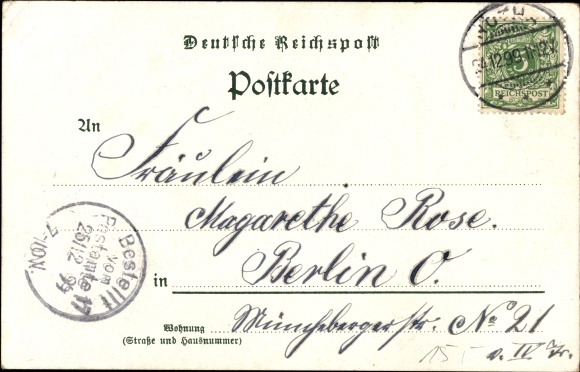 Deutsche Reichspost
Postkarte
24.12.99
5
REICHSPOST
An
Fräulein
Magarethe Rose.
in Berlin O.
Wohnung
(Straße und Hausnummer)
Münchebergerstr. No 21
v. IV Tr.
15
Bestellt
vom
Postamte 17
25/12 99
7-10 V.